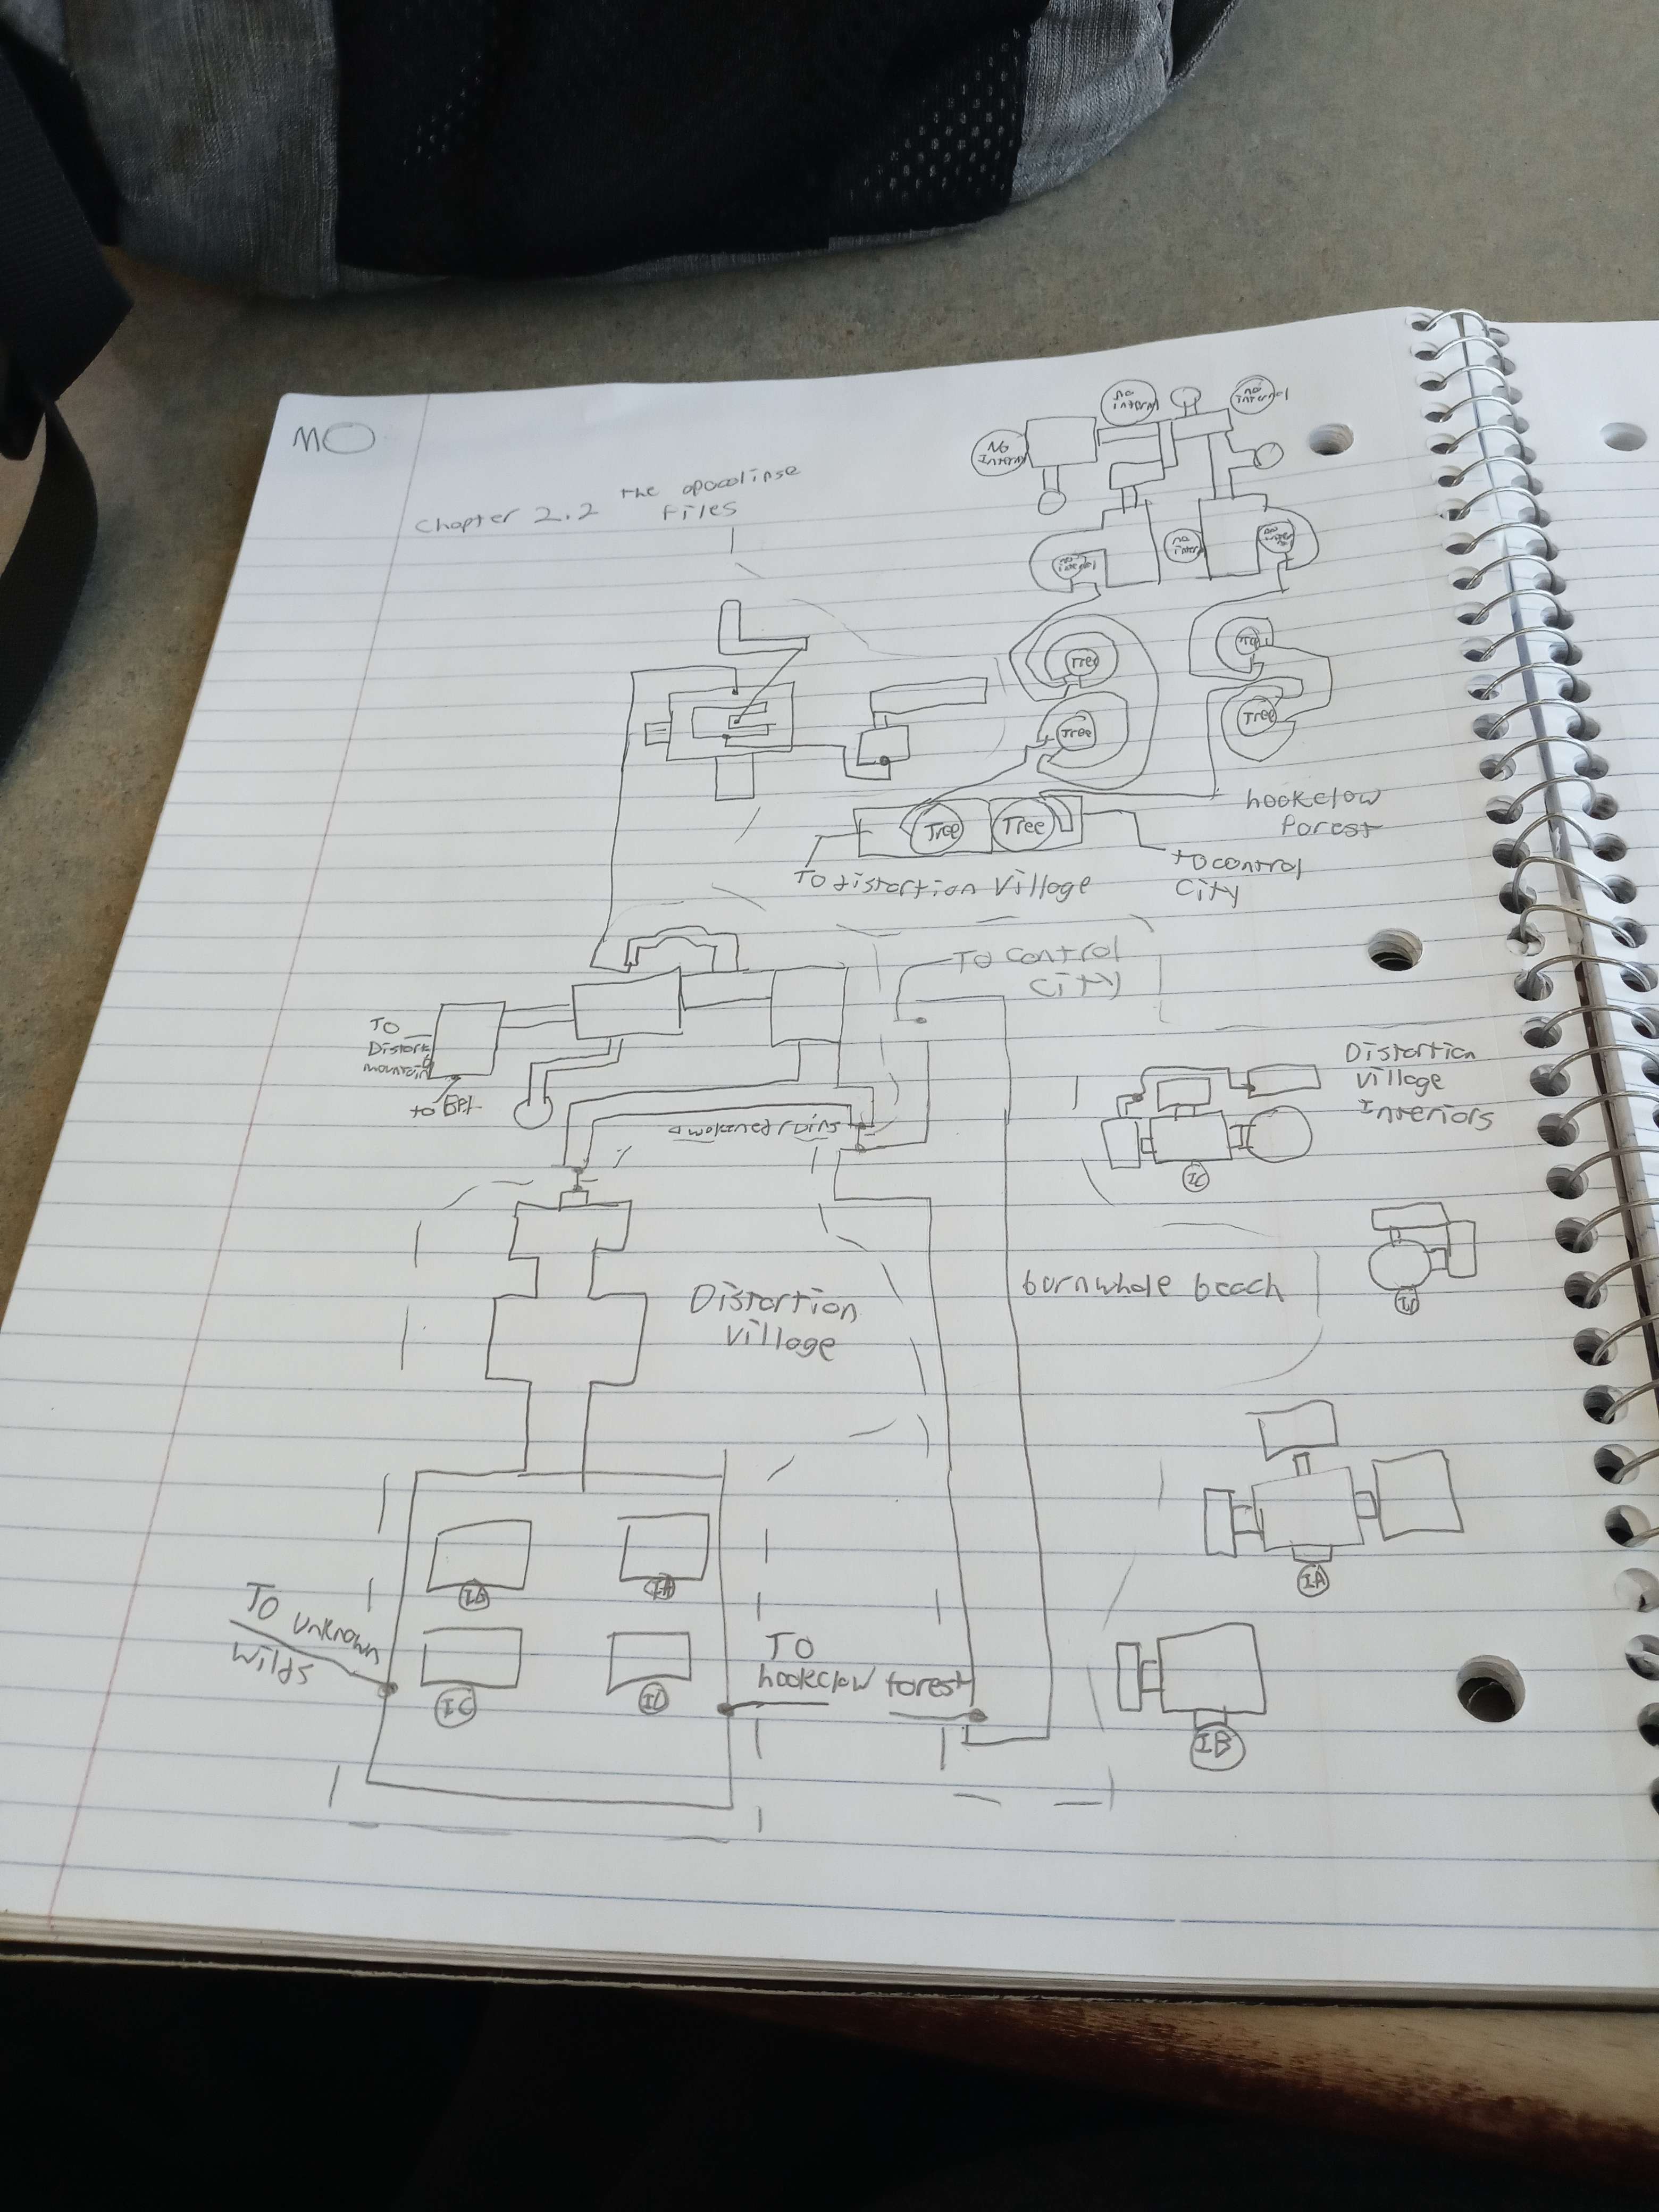 MO
Chapter 2.2 the apocalipse
Files
No
Intern
no
intern
no
internal
no
intern
no
internal
Tree
Tree
Tree
Tree
Tree
Tree
hookclaw
forest
To distortion Village
to control
City
To control
City
TO
Distort
mountain
to
awokened ruins
Distortion
Village
Interiors
IC
Distortion
Village
burnwhole beach
IA
IA
IC
TO unknown
wilds
TO
hookclaw forest
IB